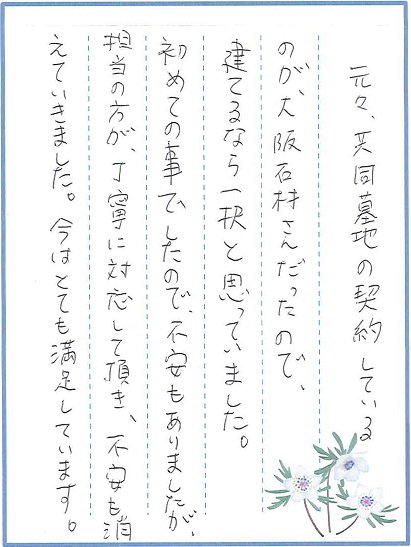 元々、共同墓地の契約している
のが、大阪石材さんだったので、
建てるなら一択と思っていました。
初めての事でしたので、不安もありましたが、
担当の方が、丁寧に対応して頂き、不安も消
えていきました。今はとても満足しています。